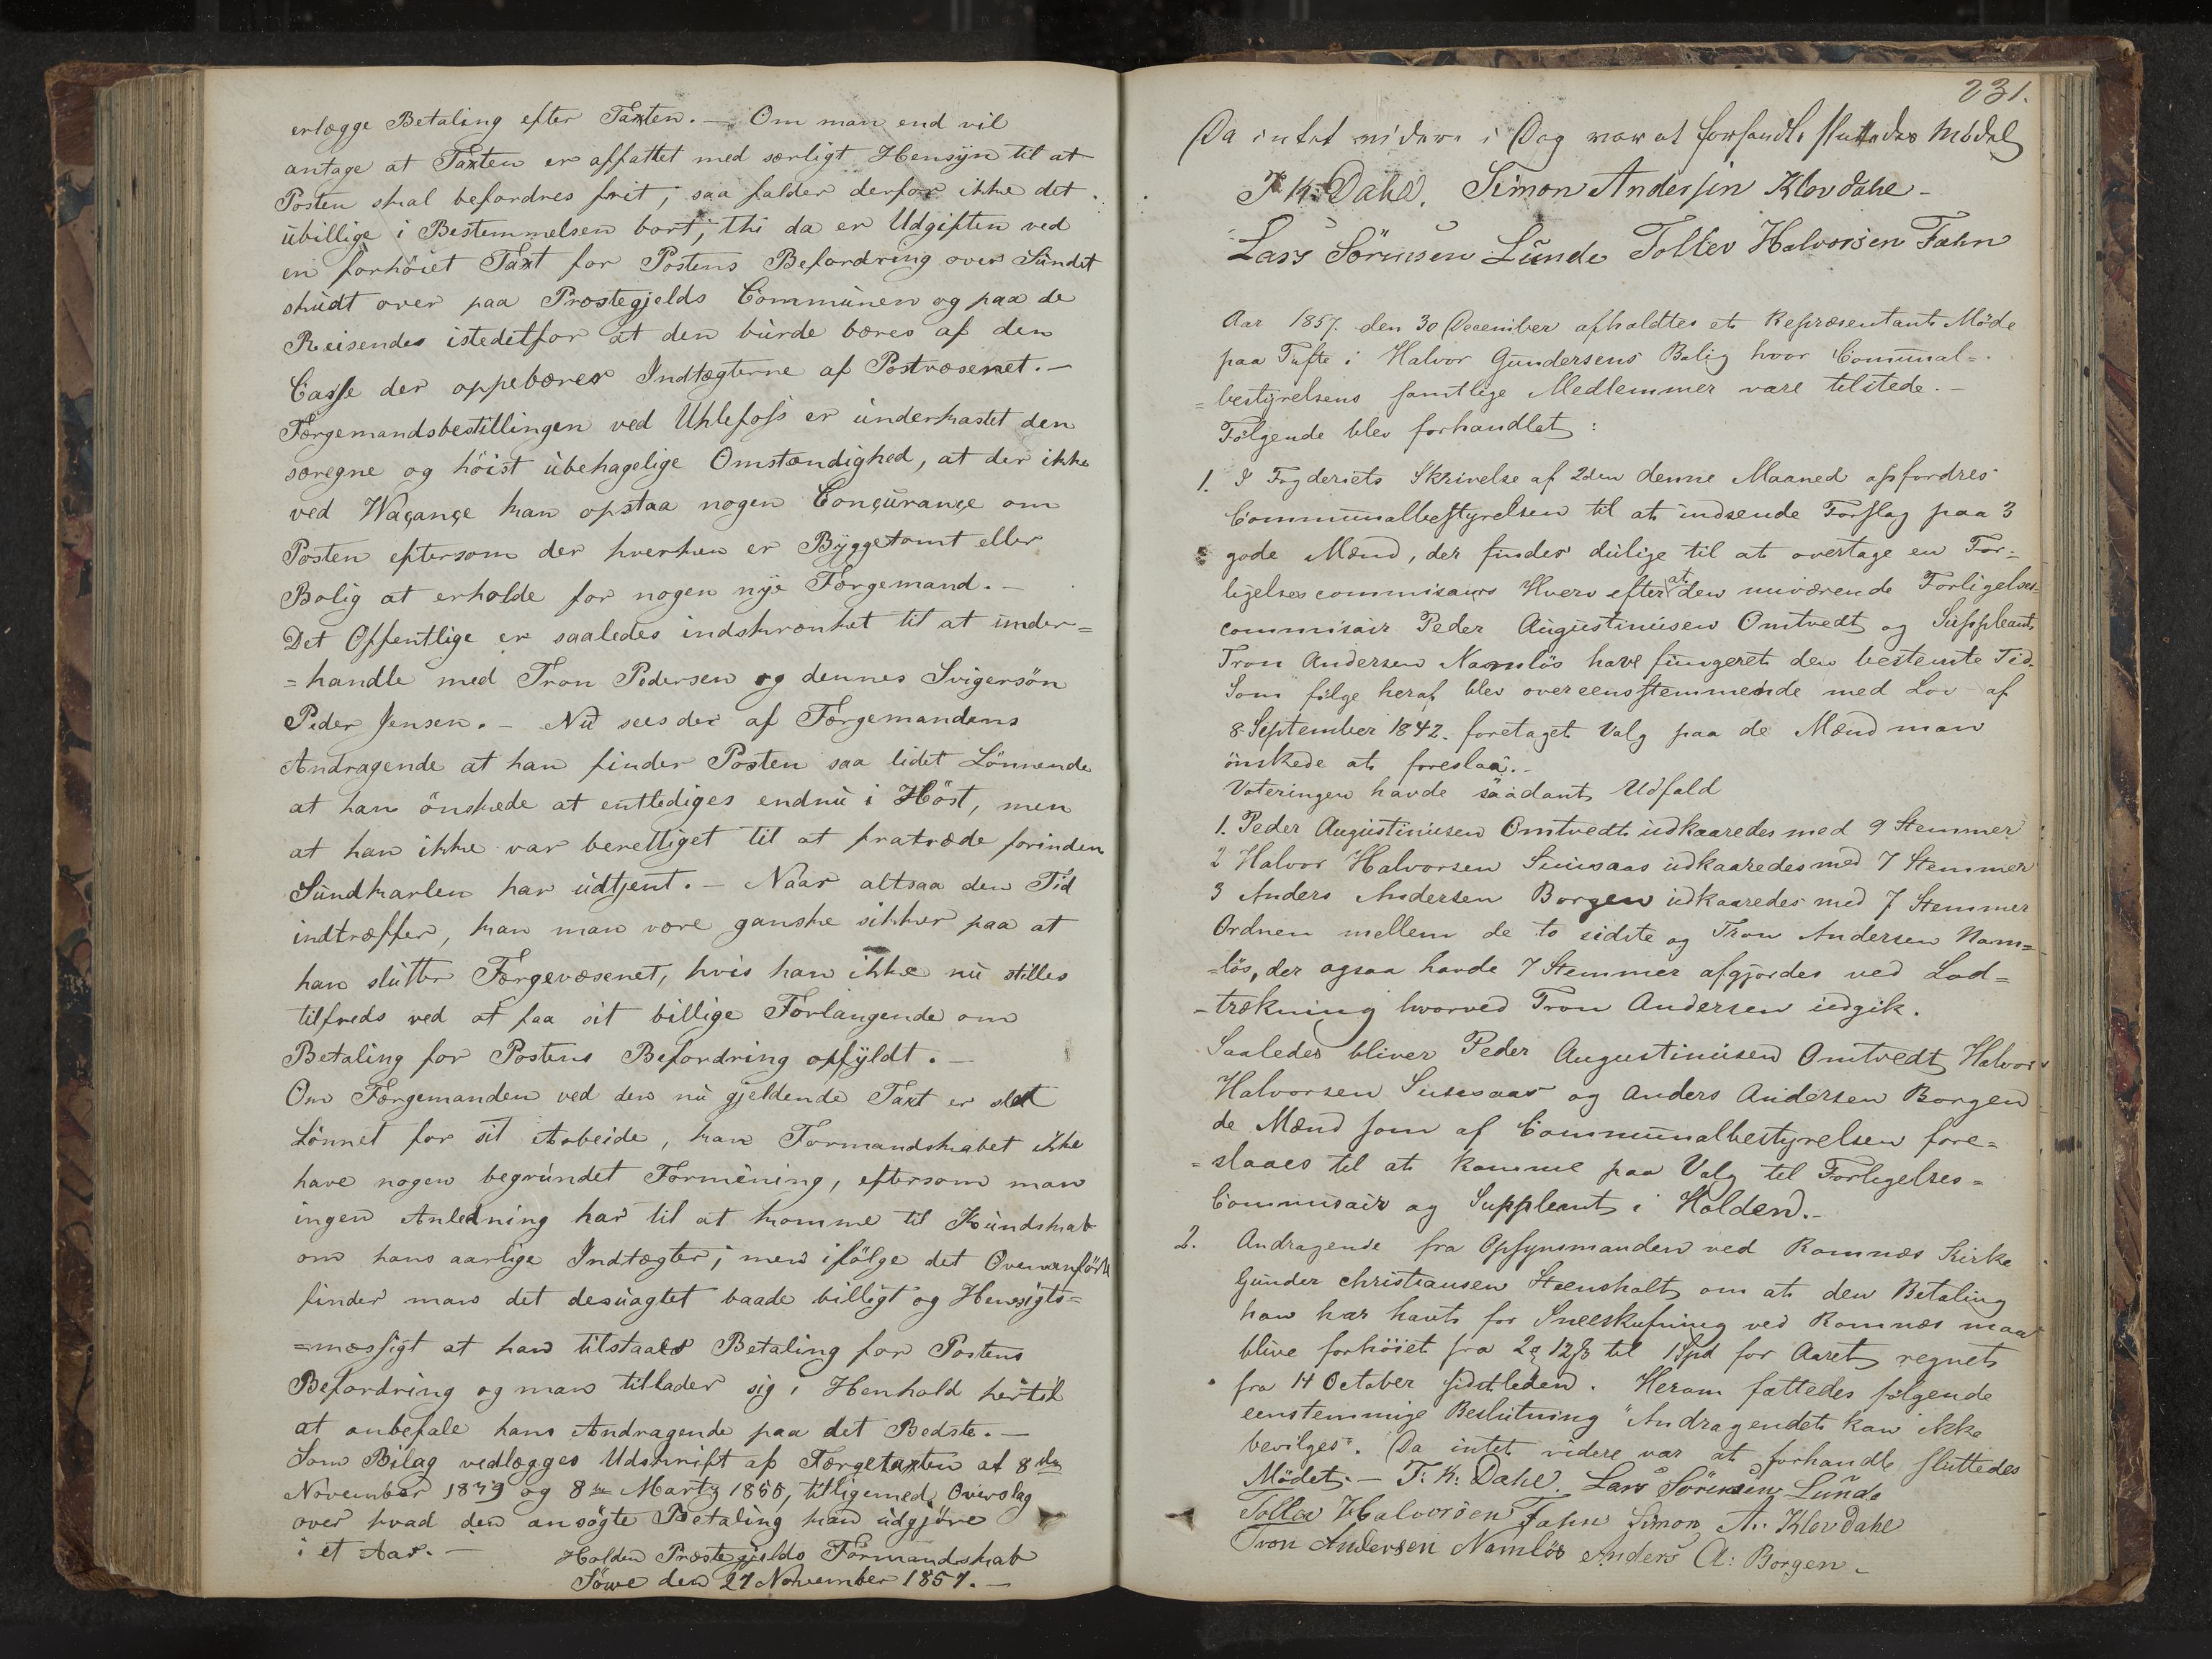 erlægge Betaling efter Taxten. — Om man end vil
antage at Taxten er affattet med særligt Hensyn til at
Posten skal befordres frit, saa falder derfor ikke det
ubillige i Bestemmelsen bort; thi da er Udgiften ved
en forhöiet Taxt for Postens Befordring over Sundet
skudt over paa Præstegjelds Communen og paa de
Reisendes istedetfor at den burde bæres af den
Casse der oppebærer Indtægterne af Postvæsenet. —
Færgemandsbestillingen ved Uhlefoss er underkastet den
særegne og höist ubehagelige Omstændighed, at der ikke
ved Vaçançe kan opstaa nogen Conçurançe om
Posten eftersom der hverken er Byggetomt eller
Bolig at erholde for nogen nye Færgemand. —
Det Offentlige er saaledes indskrænket til at under=
=handle med Tron Pedersen og dennes Svigersön
Peder Jensen. — Nu sees der af Færgemandens
Andragende at han finder Posten saa lidet Lönnende
at han önskede at entlediges endnu i Höst, men
at han ikke var berettiget til at fratræde forinden
Sundkarlen har udtjent. — Naar altsaa den Tid
indtræffer, kan man være ganske sikker paa at
han slutter Færgevæsenet, hvis han ikke nu stilles
tilfreds ved at faa sit billige Forlangende om
Betaling for Postens Befordring opfyldt. —
Om Færgemanden ved den nu gjeldende Taxt er slet
Lönnet for sit Arbeide, kan Formandskabet ikke
have nogen begrundet Formening, eftersom man
ingen Anledning har til at komme til Kundskab
om hans aarlige Indtægter; men ifölge det Ovenanförte
finder man det desuagtet baade billigt og Hensigts=
=mæssigt at han tilstaaes Betaling for Postens
Befordring og man tillader sig i Henhold hertil
at anbefale hans Andragende paa det Bedste. —
Som Bilag vedlægges Udskrift af Færgetaxten af 8de
November 1839 og 8de Martz 1855, tilligemed Overslag
over hvad den ansögte Betaling kan udgjöre
i et Aar. — Holden Præstegjelds Formandskab
Söwe den 27 November 1857. —
231.
Da intet videre i Dag var at forhandle sluttedes Mödet
T. K. Dahl. Simon Andersen Klovdahl —
Lars Sörensen Lunde Tollev Halvorsen Fahn
Aar 1857. den 30 December afholdtes et Repræsentant Möde
paa Tufte i Halvor Gundersens Bolig hvor Comunal=
=bestyrelsens samtlige Medlemmer vare tilstede. —
Fölgende blev forhandlet:
1. I Fogderiets Skrivelse af 2den denne Maaned opfordres
Communalbestyrelsen til at indsende Forslag paa 3
gode Mænd, der findes dulige til at overtage en For=
ligelsescommisairs Hverv efter at den nuværende Forligelses=
commisair Peder Augustinusen Omtvedt og Suppleant
Tron Andersen Namlös have fungeret den bestemte Tid.
Som fölge heraf blev overeensstemmende med Lov af
8 September 1842. foretaget Valg paa de Mænd man
önskede at foreslaa. —
Voteringen havde saadant Udfald
1. Peder Augustinusen Omtvedt udkaaredes med 9 Stemmer
2 Halvor Halvorsen Susesaas udkaaredes med 7 Stemmer
3 Anders Andersen Borgen udkaaredes med 7 Stemmer
Ordnen mellem de to sidste og Tron Andersen Nam=
=lös, der ogsaa havde 7 Stemmer afgjordes ved Lod=
-trækning hvorved Tron Andersen udgik.
Saaledes bliver Peder Augustinusen Omtvedt Halvor
Halvorsen Susesaas og Anders Andersen Borgen
de Mænd som af Communalbestyrelsen fore=
=slaaes til at komme paa Valg til Forligelses=
Commisair og Suppleant i Holden. —
2. Andragende fra Opsynsmanden ved Romnæs Kirke
Gunder Christiansen Steensholt om at den Betaling
han har havt for Sneeskufning ved Romnæs maa
blive forhöiet fra 2 12 til 1 Spd for Aaret regnet
fra 14 October sidstleden. Herom fattedes fölgende
eenstemmige Beslutning "Andragendet kan ikke
bevilges". Da intet videre var at forhandle sluttedes
Mödet. — T. K. Dahl. Lars Sörensen Lunde
Tollev Halvorsen Fahn Simon A. Klovdahl
Tron Andersen Namlös Anders A: Borgen —